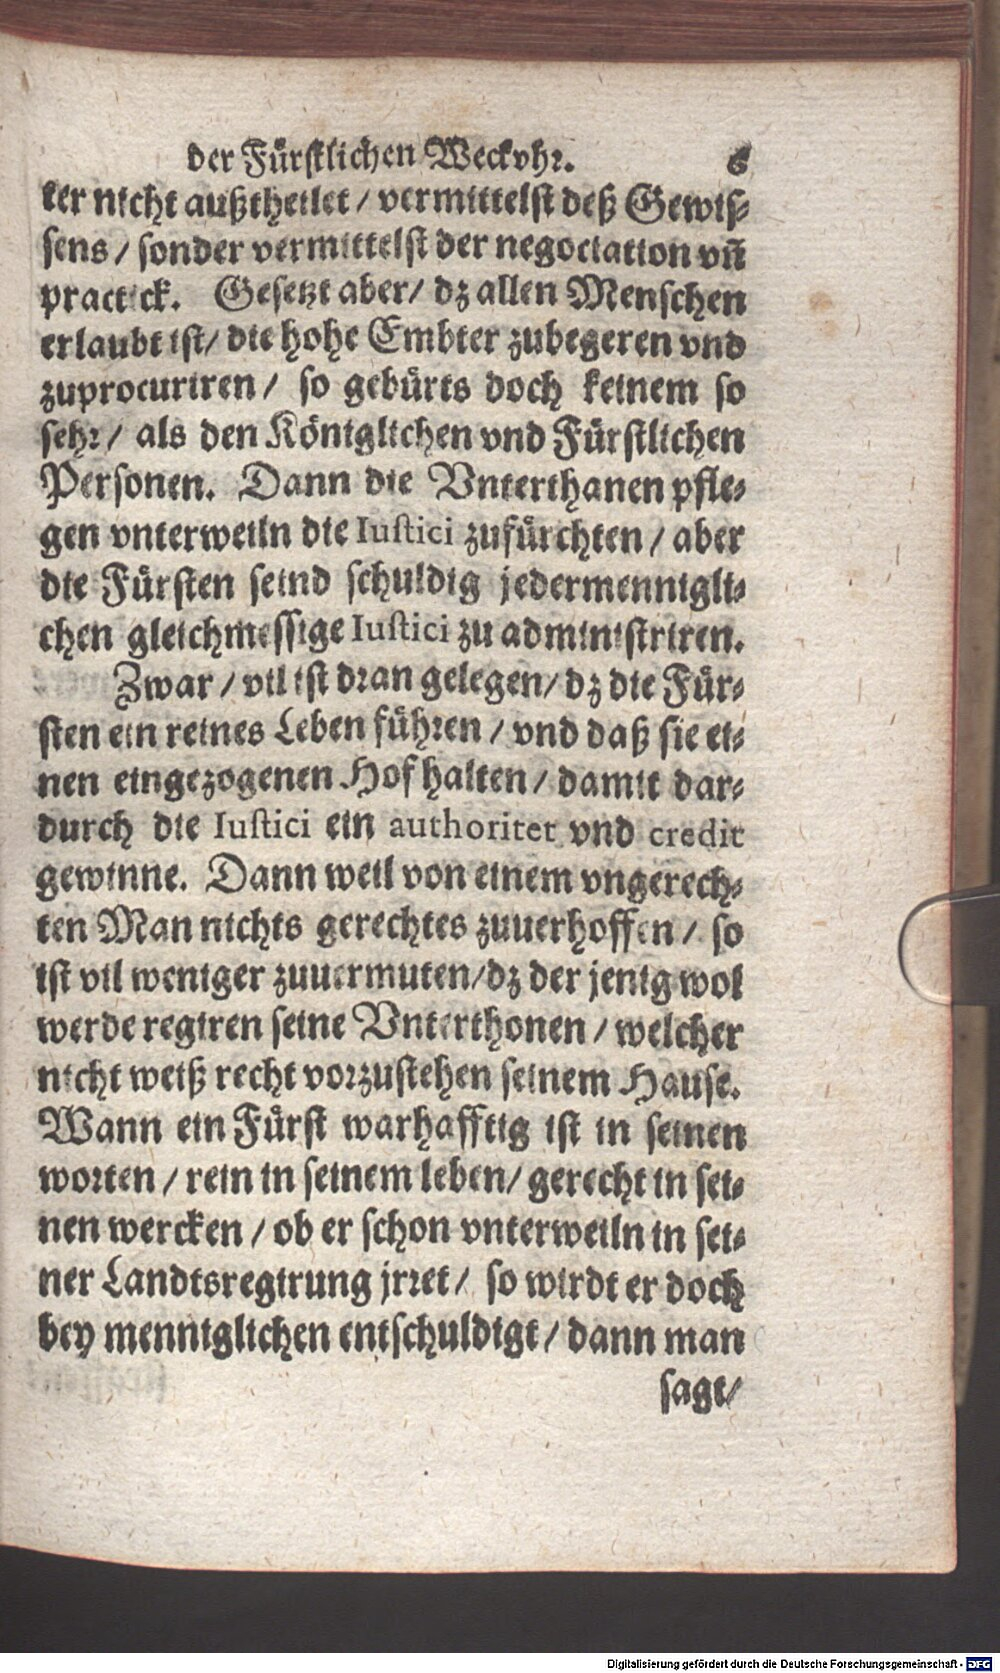 der Fürstlichen Weckvhr. 6
ter nicht außtheilet / vermittelst deß Gewis-
sens / sonder vermittelst der negociation vñ
practick. Gesetzt aber / dz allen Menschen
erlaubt ist / die hohe Embter zubegeren vnd
zuprocuriren / so gebürts doch keinem so
sehr / als den Königlichen vnd Fürstlichen
Personen. Dann die Vnterthanen pfle-
gen vnterweiln die Iustici zufürchten / aber
die Fürsten seind schuldig jedermennigli-
chen gleichmessige Iustici zu administriren.
Zwar / vil ist dran gelegen / dz die Für-
sten ein reines Leben führen / vnd daß sie ei-
nen eingezogenen Hof halten / damit dar-
durch die Iustici ein authoritet vnd credit
gewinne. Dann weil von einem vngerech-
ten Man nichts gerechtes zuuerhoffen / so
ist vil weniger zuuermuten / dz der jenig wol
werde regiren seine Vnterthonen / welcher
nicht weiß recht vorzustehen seinem Hause.
Wann ein Fürst warhafftig ist in seinen
worten / rein in seinem leben / gerecht in sei-
nen wercken / ob er schon vnterweiln in sei-
ner Landtsregirung jrret / so wirdt er doch
bey menniglichen entschuldigt / dann man
sagt /
Digitalisierung gefördert durch die Deutsche Forschungsgemeinschaft - DFG